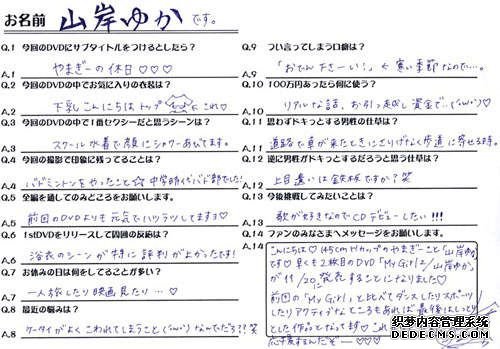 お名前 山岸ゆか です。
Q.1 今回のDVDにサブタイトルをつけるとしたら？
A.1 やまぎーの休日♡♡♡
Q.2 今回のDVDの中でお気に入りの衣装は？
A.2 下乳こんにちはトップ これ♡
Q.3 今回のDVDの中で1番セクシーだと思うシーンは？
A.3 スクール水着で顔にシャワーあびてます。
Q.4 今回の撮影で印象に残ってることは？
A.4 バドミントンをやったこと☆中学時代バド部でした!
Q.5 全編を通してのみどころをお願いします。
A.5 前回のDVDよりも元気でハツラツしてますョ♡
Q.6 1stDVDをリリースして周囲の反応は？
A.6 浴衣のシーンが特に評判が上がったです!
Q.7 お休みの日は何をしてることが多い？
A.7 一人旅したり映画見たり…♡
Q.8 最近の悩みは？
A.8 ケータイがよくこわれてしまうこと(´;ω;`) なんでだろ??笑
Q.9 つい言ってしまう口癖は？
A.9 「おでん下さーい!」 ←寒い季節なので…。
Q.10 100万円あったら何に使う？
A.10 リアルな話、お引っ越し資金で…(´・ω・`)
Q.11 思わずドキっとする男性の仕草は？
A.11 道路で車が来たときにさりげなく歩道に寄せる時。
Q.12 逆に男性がドキっとするだろうと思う仕草は？
A.12 上目遣いは鉄板ですか？笑
Q.13 今後挑戦してみたいことは？
A.13 歌が好きなのでCDデビューしたい!!!
Q.14 ファンのみなさまへメッセージをお願いします。
A.14 こんにちは♡145cmFカップのやまぎーこと「山岸ゆか」
です♡早くも2枚目のDVD「My Girl2/山岸ゆか」
が11/20に発売することになりました♡
前回の「My Girl」と比べてダンスしたりスポーツ
したりアクティブなところもあれば最後はしっとり
とした作品となってます♡これ
応援するんだぞー♡♡
织梦内容管理系统
DEDECMS.COM